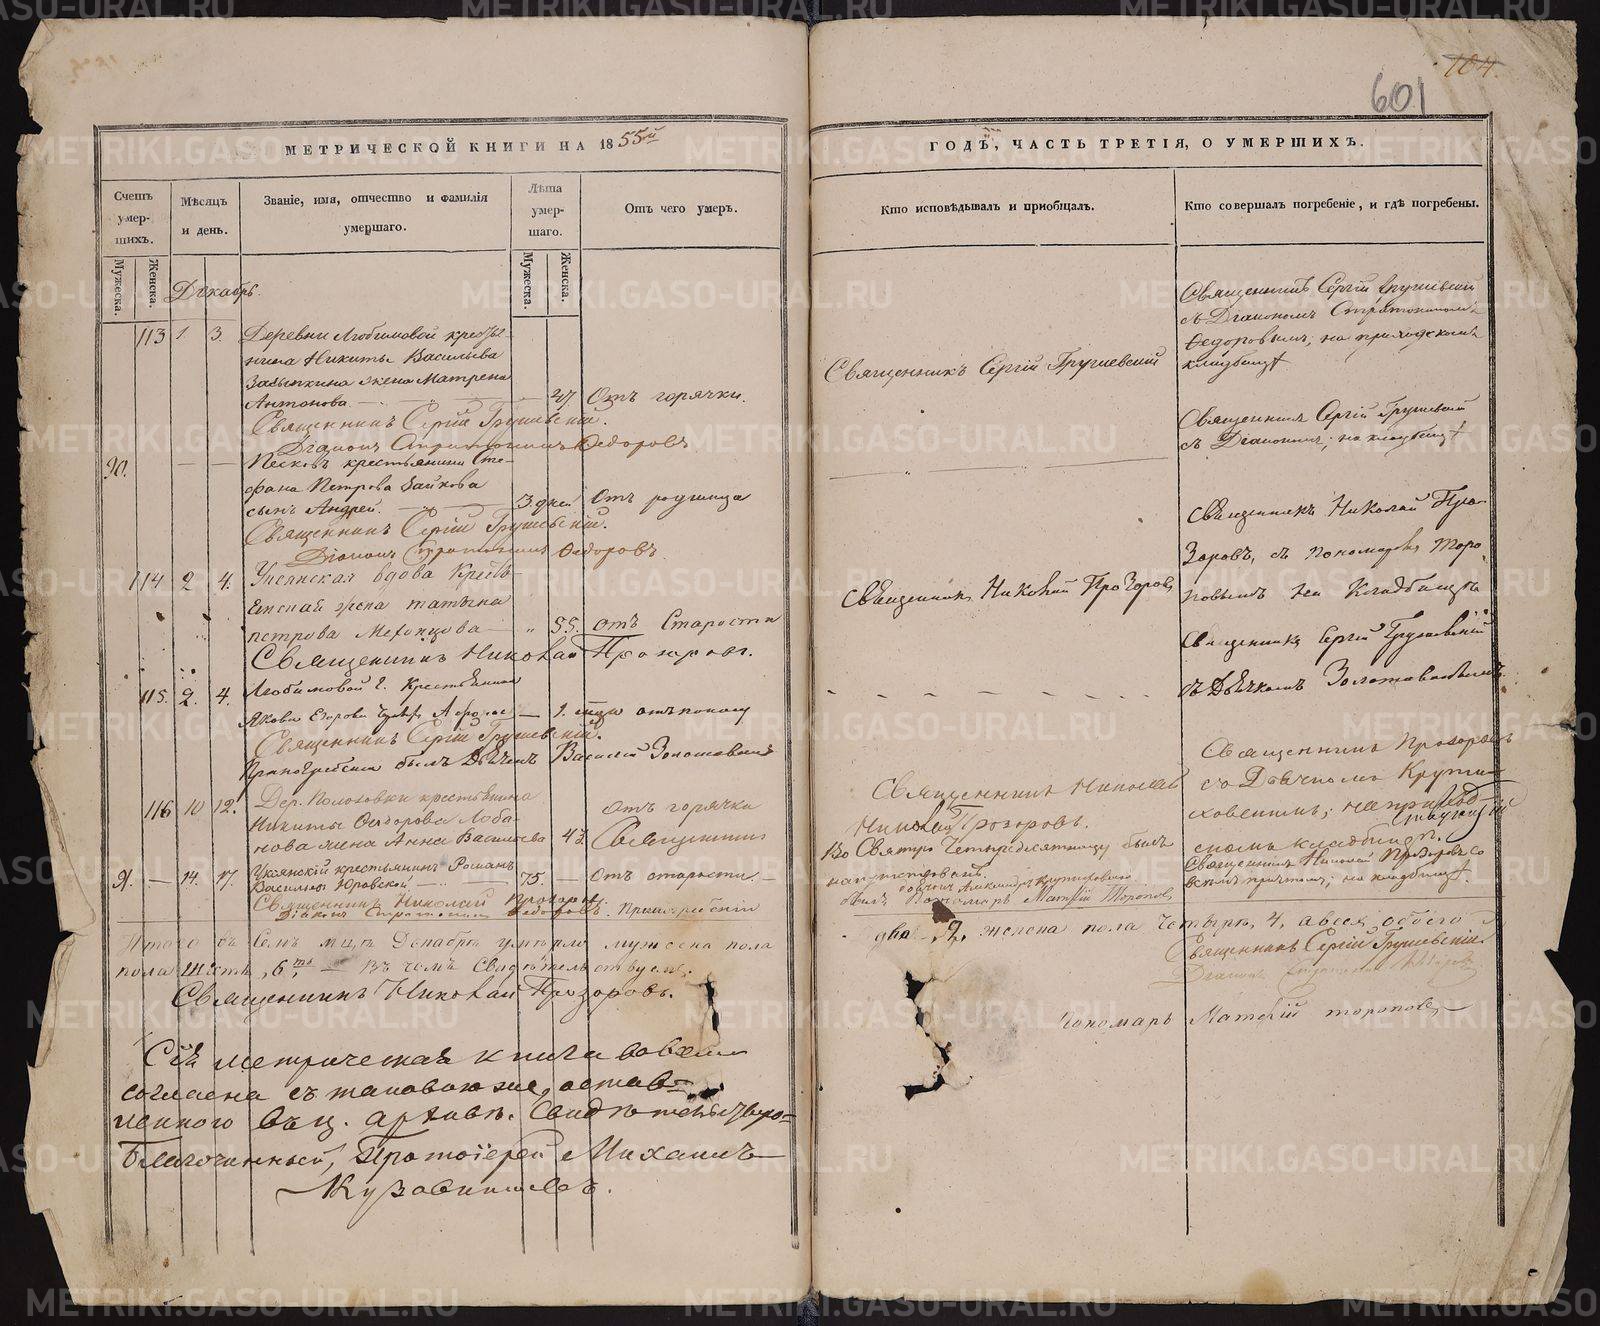 104.
601
МЕТРИЧЕСКОЙ КНИГИ НА 1855й
Счетъ умер-шихъ.
Мужеска.
Женска.
Мѣсяцъ и день.
Званіе, имя, отчество и фамилія умершаго.
Лѣта умер-шаго.
Мужеска.
Женска.
Отъ чего умеръ.
Декабрь.
113 1. 3. Деревни Любимовой кресть-
янина Никиты Васильева
Забыткина жена Матрена
Антонова 47. Отъ горячки.
Священникъ Сергій Грушевскій.
Діаконъ Стратоникъ Федоровъ
90. — — Песковъ крестьянина Сте-
фана Петрова Зайкова
сынъ Андрей. 3. дней Отъ родимца
Священникъ Сергій Грушевскій.
Діаконъ Стратоникъ Федоровъ
114 2 4. вдова Кресть-
жена татьяна
петрова 55. отъ Старости
Священникъ Николай Прозоровъ.
115. 2. 4. Любимовой Крестьянина
Якова Егорова 1. отъ поносу
Священникъ Сергій Грушевскій.
Припогребении былъ Дьячекъ Василій Золотавинъ
116 10 12. Дер. крестьянина
Никиты Федорова Лоба-
нова жена Анна Васильева 43. отъ горячки
Священникъ
91. — 14. 17. крестьянинъ Романъ
Васильевъ Юровской 75. — Отъ старости.
Священникъ Николай Прозоровъ
Діаконъ Стратоникъ Федоровъ. Припогребеніи
Итого въ Семъ мцѣ Декабрѣ умерло мужеска пола
пола шесть, 6ть — Въ чемъ Свидѣтельствуемъ.
Священникъ Николай Прозоровъ.
Сія метрическая книга во всемъ
согласна съ таковою же, остав-
ленною въ ц. архивѣ. Свидѣтельствую
Благочинный, Протоіерей Михаилъ
ГОДЪ, ЧАСТЬ ТРЕТІЯ, О УМЕРШИХЪ.
Кто исповѣдывалъ и пріобщалъ.
Кто совершалъ погребеніе, и гдѣ погребены.
Священникъ Сергій Грушевскій
съ Діакономъ Стратоникомъ
Федоровымъ, на приходскомъ
кладбищѣ
Священникъ Сергій Грушевскій
Священникъ Сергій Грушевскій
съ Діакономъ, на кладбищѣ
Священникъ Николай Про-
зоровъ, съ пономаремъ Торо-
повымъ на Кладбищѣ
Священникъ Николай Прозоровъ
Священникъ Сергій Грушевскій
съ Дьячкомъ Золотавинымъ
Священникъ Прозоровъ
съ Дьячкомъ Крути-
ховскимъ; на приход-
скомъ кладбищѣ.
Священникъ Николай
Николай Прозоровъ.
Во Святую Четыредесятницу былъ
Александръ Крутиховской
былъ Пономарь Матвей Торопов
Священникъ Николай Прозоровъ со
всемъ причтомъ; на кладбищѣ.
два 2, женска пола Четыре, 4, а всех обоего
Священникъ Сергій Грушевскій
Пономарь Матвій торопов
METRIKI.GASO-URAL.RU